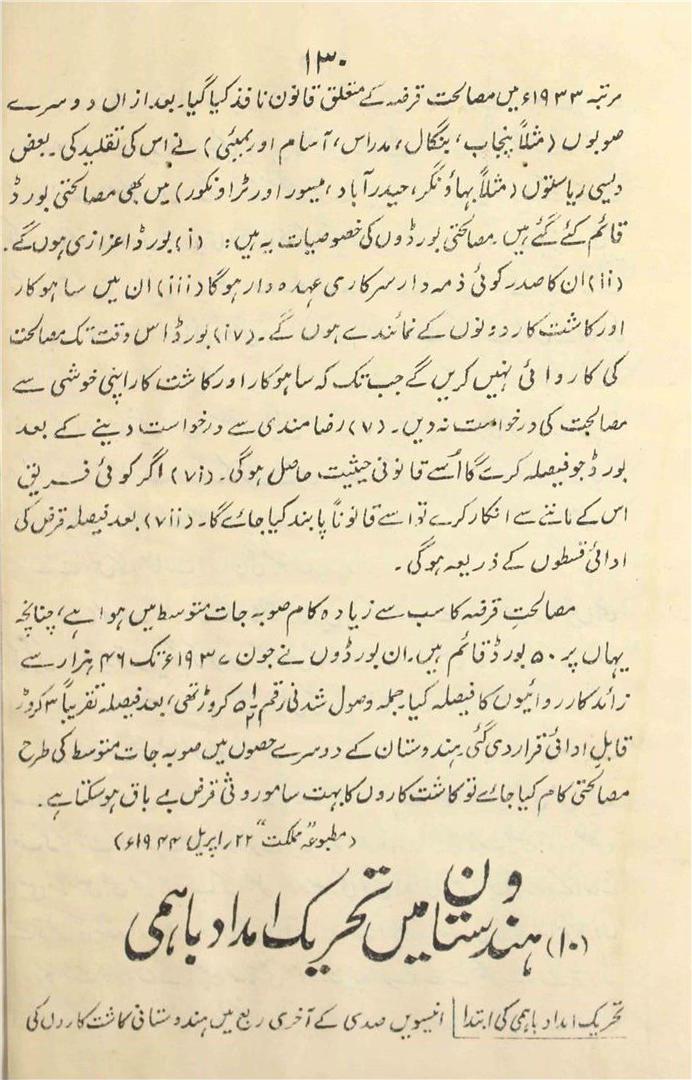 ۱۳۰
مرتبہ ۱۹۳۳ء میں مصالحت قرضہ کے متعلق قانون نافذ کیا گیا۔ بعد ازاں دوسرے
صوبوں (مثلاً پنجاب، بنگال، مدراس، آسام اور بمبئی) نے اس کی تقلید کی۔ بعض
دیسی ریاستوں (مثلاً بہاؤنگر، حیدرآباد، میسور اور ٹراونکور) میں بھی مصالحتی بورڈ
قائم کئے گئے ہیں۔ مصالحتی بورڈوں کی خصوصیات یہ ہیں: (i) بورڈ اعزازی ہوں گے۔
(ii) ان کا صدر کوئی ذمہ دار سرکاری عہدہ دار ہوگا (iii) ان میں ساہوکار
اور کاشت کار دونوں کے نمائندے ہوں گے۔ (iv) بورڈ اس وقت تک مصالحت
کی کاروائی نہیں کریں گے جب تک کہ ساہوکار اور کاشت کار اپنی خوشی سے
مصالحت کی درخواست نہ دیں۔ (v) رضامندی سے درخواست دینے کے بعد
بورڈ جو فیصلہ کرے گا اُسے قانونی حیثیت حاصل ہوگی۔ (vi) اگر کوئی فریق
اس کے ماننے سے انکار کرے تو اسے قانوناً پابند کیا جائے گا۔ (vii) بعد فیصلہ قرض کی
ادائی قسطوں کے ذریعہ ہوگی۔
مصالحتِ قرضہ کا سب سے زیادہ کام صوبہ جات متوسط میں ہوا ہے، چنانچہ
یہاں پر ۵۰ بورڈ قائم ہیں۔ ان بورڈوں نے جون ۱۹۳۷ء تک ۴۶ ہزار سے
زائد کارروائیوں کا فیصلہ کیا۔ جملہ وصول شدنی رقم ۵½ کروڑ تھی، بعد فیصلہ تقریباً ۳ کروڑ
قابلِ ادائی قرار دی گئی۔ ہندوستان کے دوسرے حصوں میں صوبہ جات متوسط کی طرح
مصالحتی کام کیا جائے تو کاشت کاروں کا بہت سا موروثی قرض بے باق ہوسکتا ہے۔
(مطبوعہ "مملکت" ۲۲؍ اپریل ۱۹۴۴ء)
(۱۰) ہندوستان میں تحریک امداد باہمی
تحریک امداد باہمی کی ابتدا | انیسویں صدی کے آخری ربع میں ہندوستانی کاشت کاروں کی